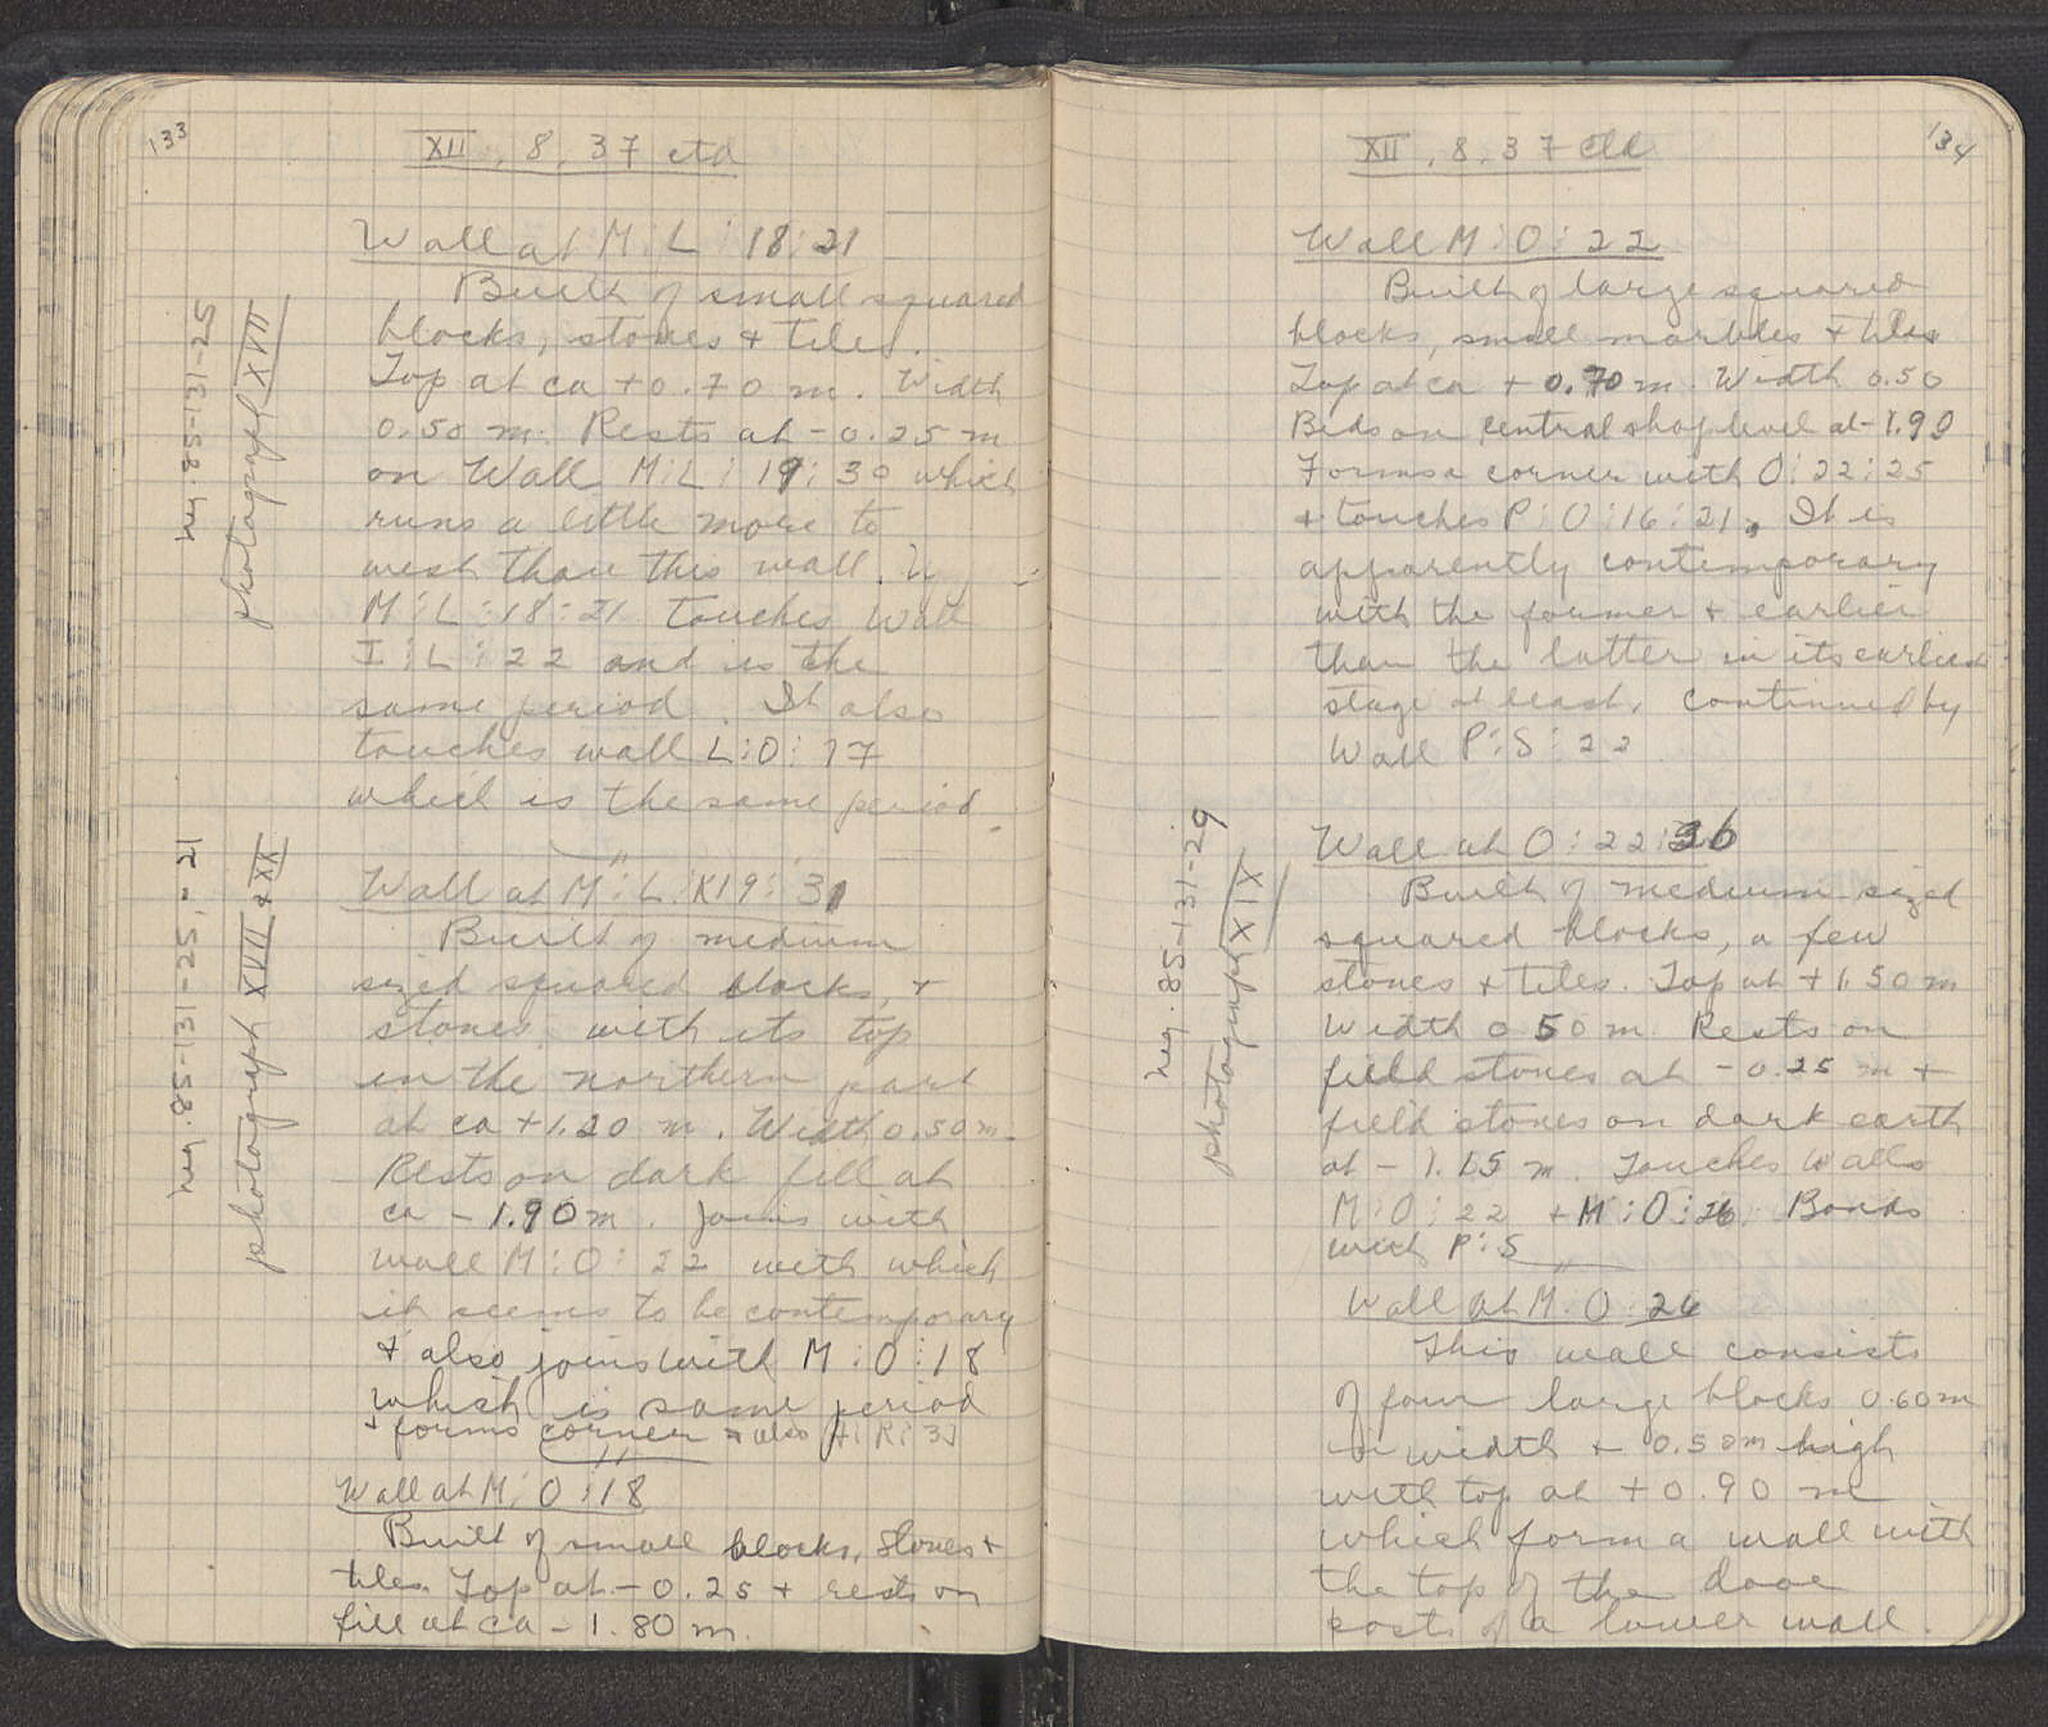 133
XII, 8, 37 ctd
Wall at M:L:18:21
Built of small squared
blocks, stones + tiles.
Top at ca +0.70 m. Width
0.50 m. Rests at -0.25 m
on Wall M:L:19:30 which
runs a little more to
west than this wall.
M:L:18:21 touches Wall
I:L:22 and is the
same period. It also
touches wall L:O:17
which is the same period.
neg. 85-131-25
photograph XVII
Wall at M:L:K19:31
Built of medium
sized squared blocks, +
stones with its top
in the northern part
at ca +1.20 m. Width 0.50 m.
Rests on dark fill at
ca -1.90 m. Joins with
wall M:O:22 with which
it seems to be contemporary
+ also joins with M:O:18
which is same period
+ forms corner also
neg. 85-131-25, -21
photograph XVII + XX
Wall at M:O:18
Built of small blocks, stones +
tiles. Top at -0.25 + rests on
fill at ca -1.80 m.
134
XII, 8, 37 ctd
Wall M:O:22
Built of large squared
blocks, small marbles + tiles
Top at ca +0.70 m. Width 0.50
Beds on central shop level at -1.90
Forms a corner with O:22:25
+ touches P:O:16:21. It is
apparently contemporary
with the former + earlier
than the latter in its earliest
stage at least, continued by
Wall P:S:22
Wall at O:22:26
Built of medium sized
squared blocks, a few
stones + tiles. Top at +1.50 m
Width 0.50 m Rests on
field stones at -0.25 m +
field stones on dark earth
at -1.15 m. Touches Walls
M:O:22 + M:O:26. Bonds
with P:S
neg. 85-131-29
photograph XIX
Wall at M:O:26
This wall consists
of four large blocks 0.60 m
in width + 0.50 m high
with top at +0.90 m
which form a wall with
the top of the door
posts of a lower wall.